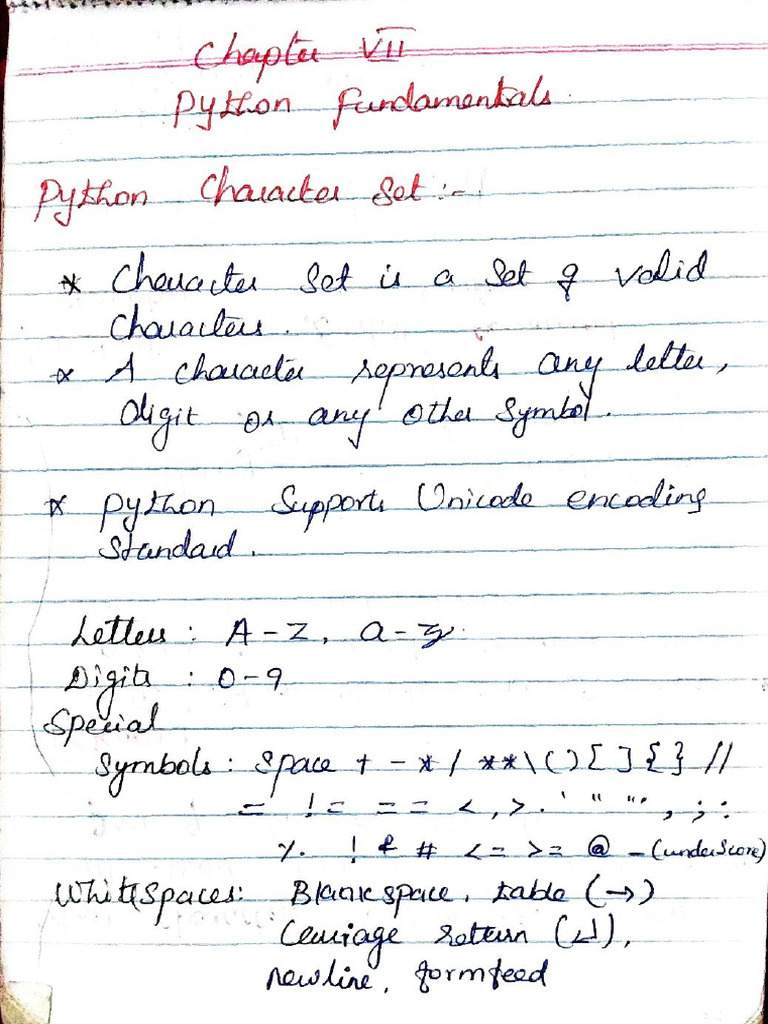 Chapter VII
Python Fundamentals
Python Character Set :-
* Character Set is a Set of valid
Characters.
* A character represents any letter,
digit or any other Symbol.
* Python Supports Unicode encoding
standard.
Letters : A-Z, a-z
Digits : 0-9
Special
Symbols : Space + - * / ** \ ( ) [ ] { } //
= != == < , > . ' " "' , ; :
% ! & # <= >= @ _ (underscore)
WhiteSpaces: Blank space, table (→)
Carriage return (↵),
newline, formfeed